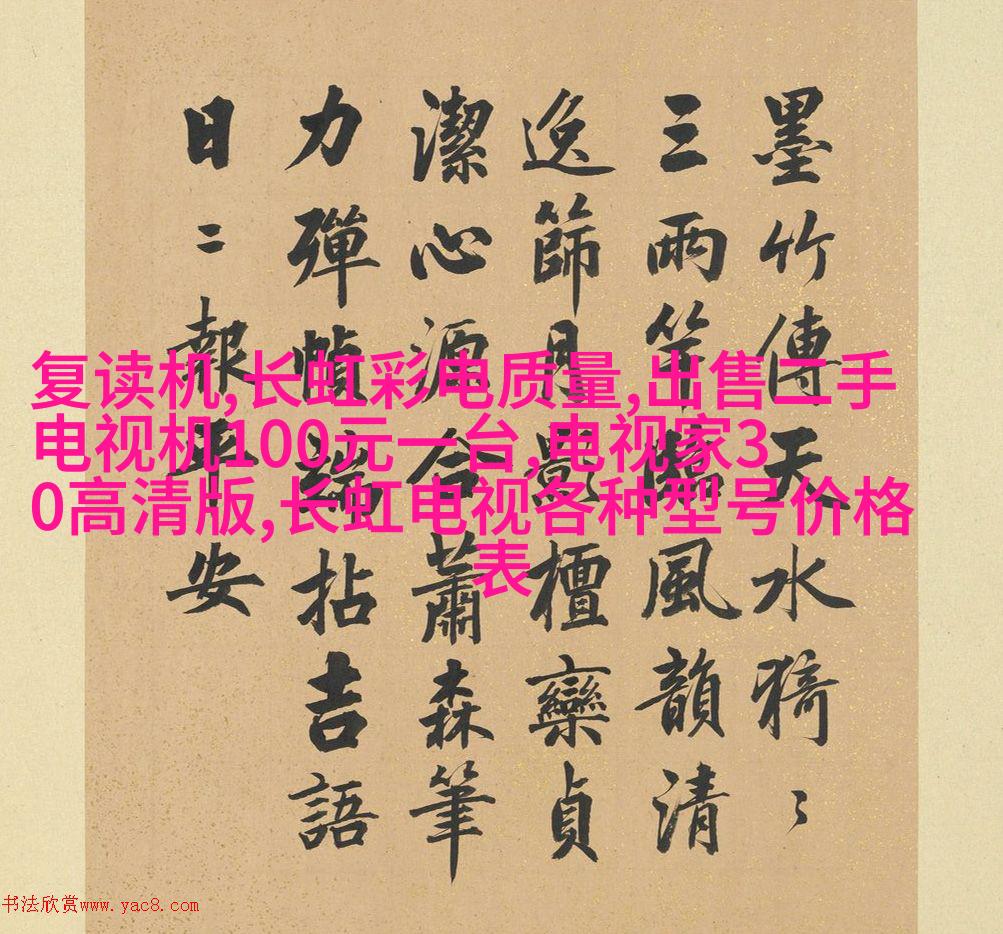 墨竹傳天水猗〻
三兩竿臨風韻清
逸篩月影檀欒貞
潔心源合蕭森筆
力彈幀端拈吉語
日〻報平安
复读机,长虹彩电质量,出售二手
电视机100元一台,电视家3
0高清版,长虹电视各种型号价格
表
书法欣赏www.yac8.com